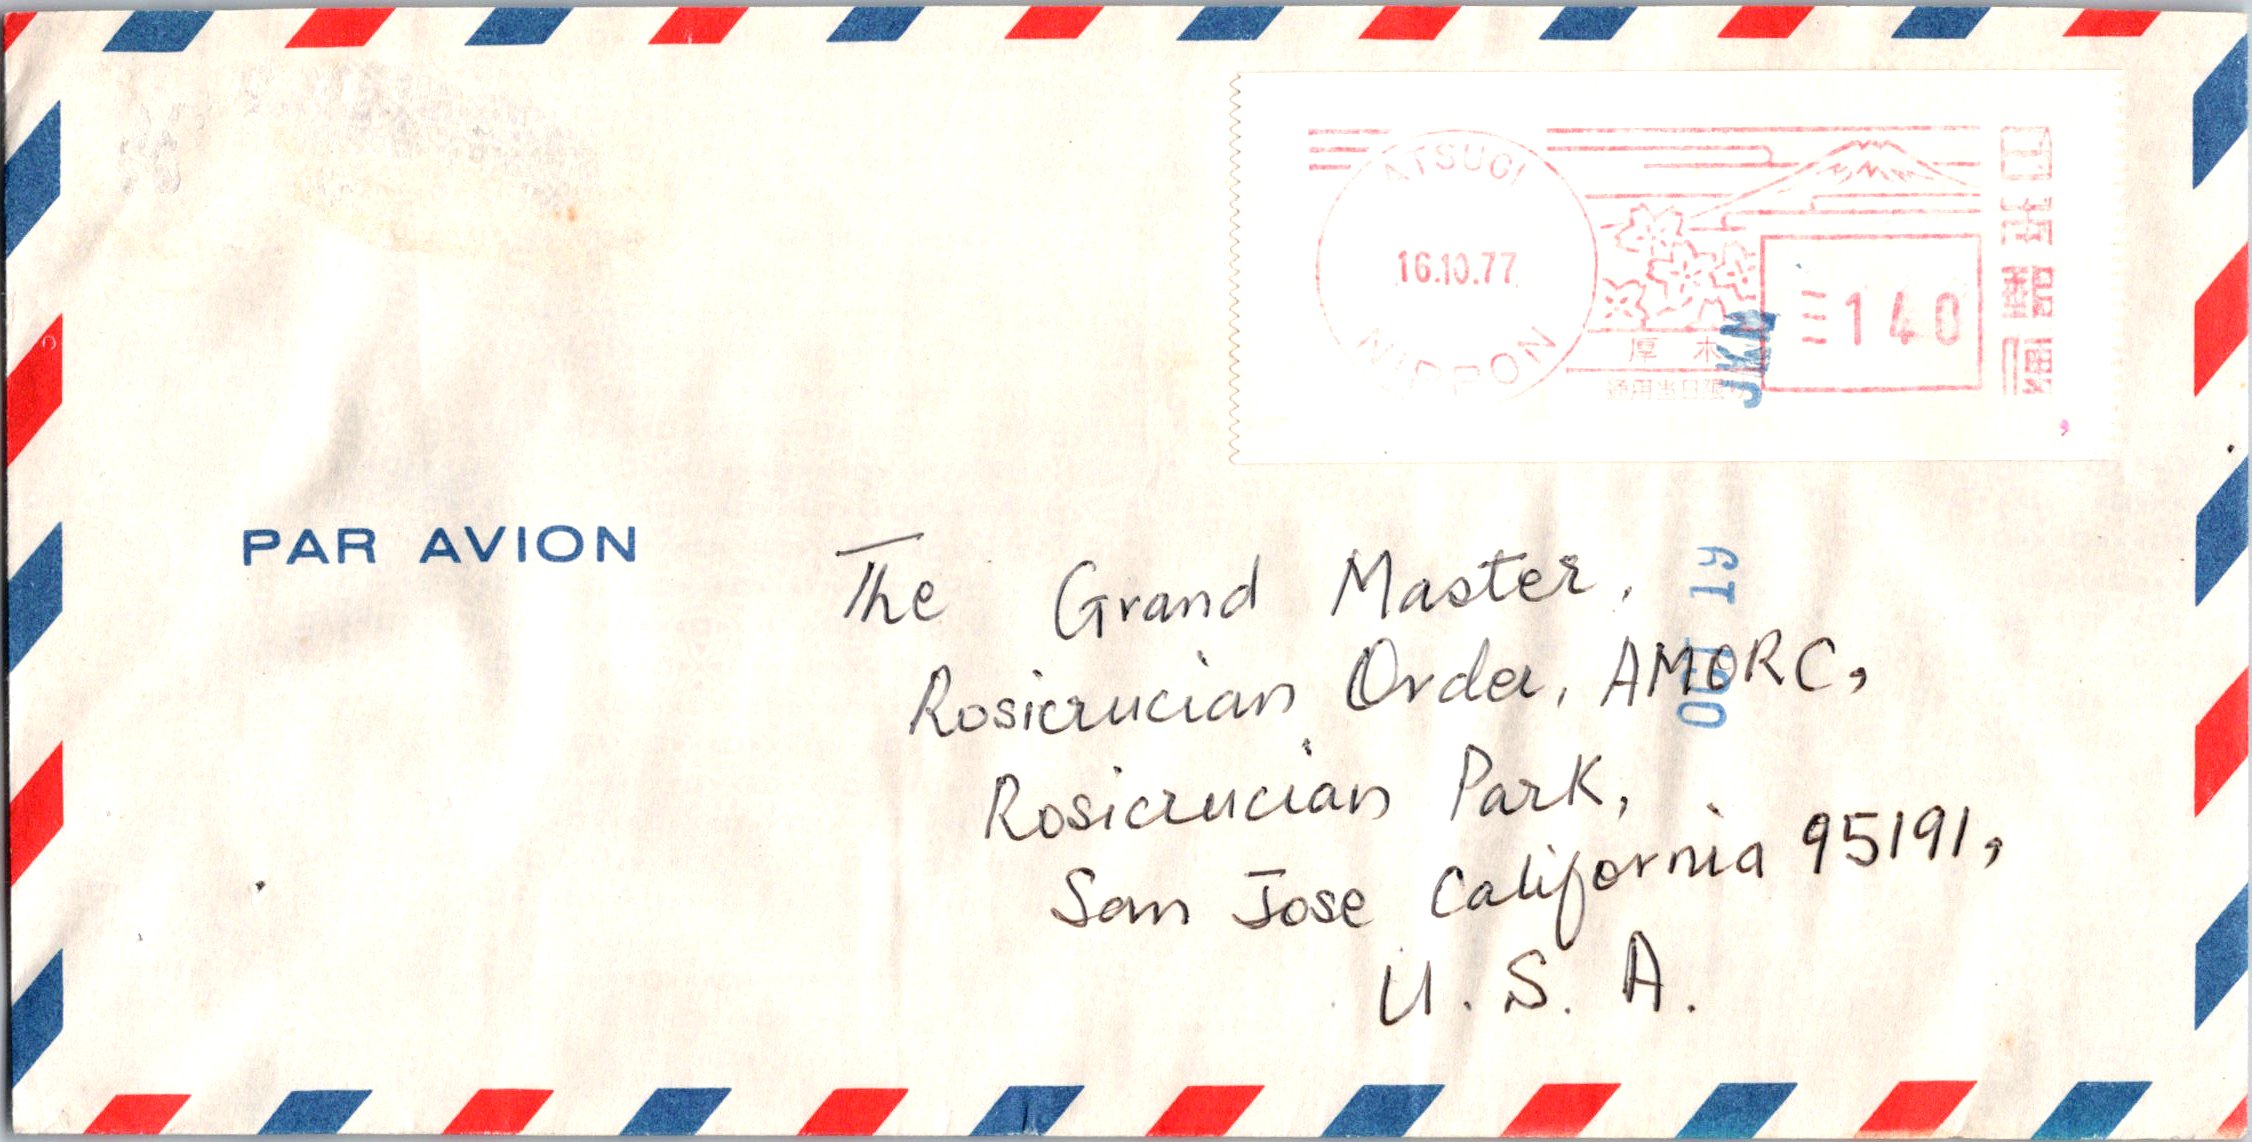 ATSUGI
16.10.77
NIPPON
厚木
通用当日限り
140
日本郵便
JKM
PAR AVION
The Grand Master,
Rosicrucian Order, AMORC,
Rosicrucian Park,
San Jose California 95191,
U. S. A.